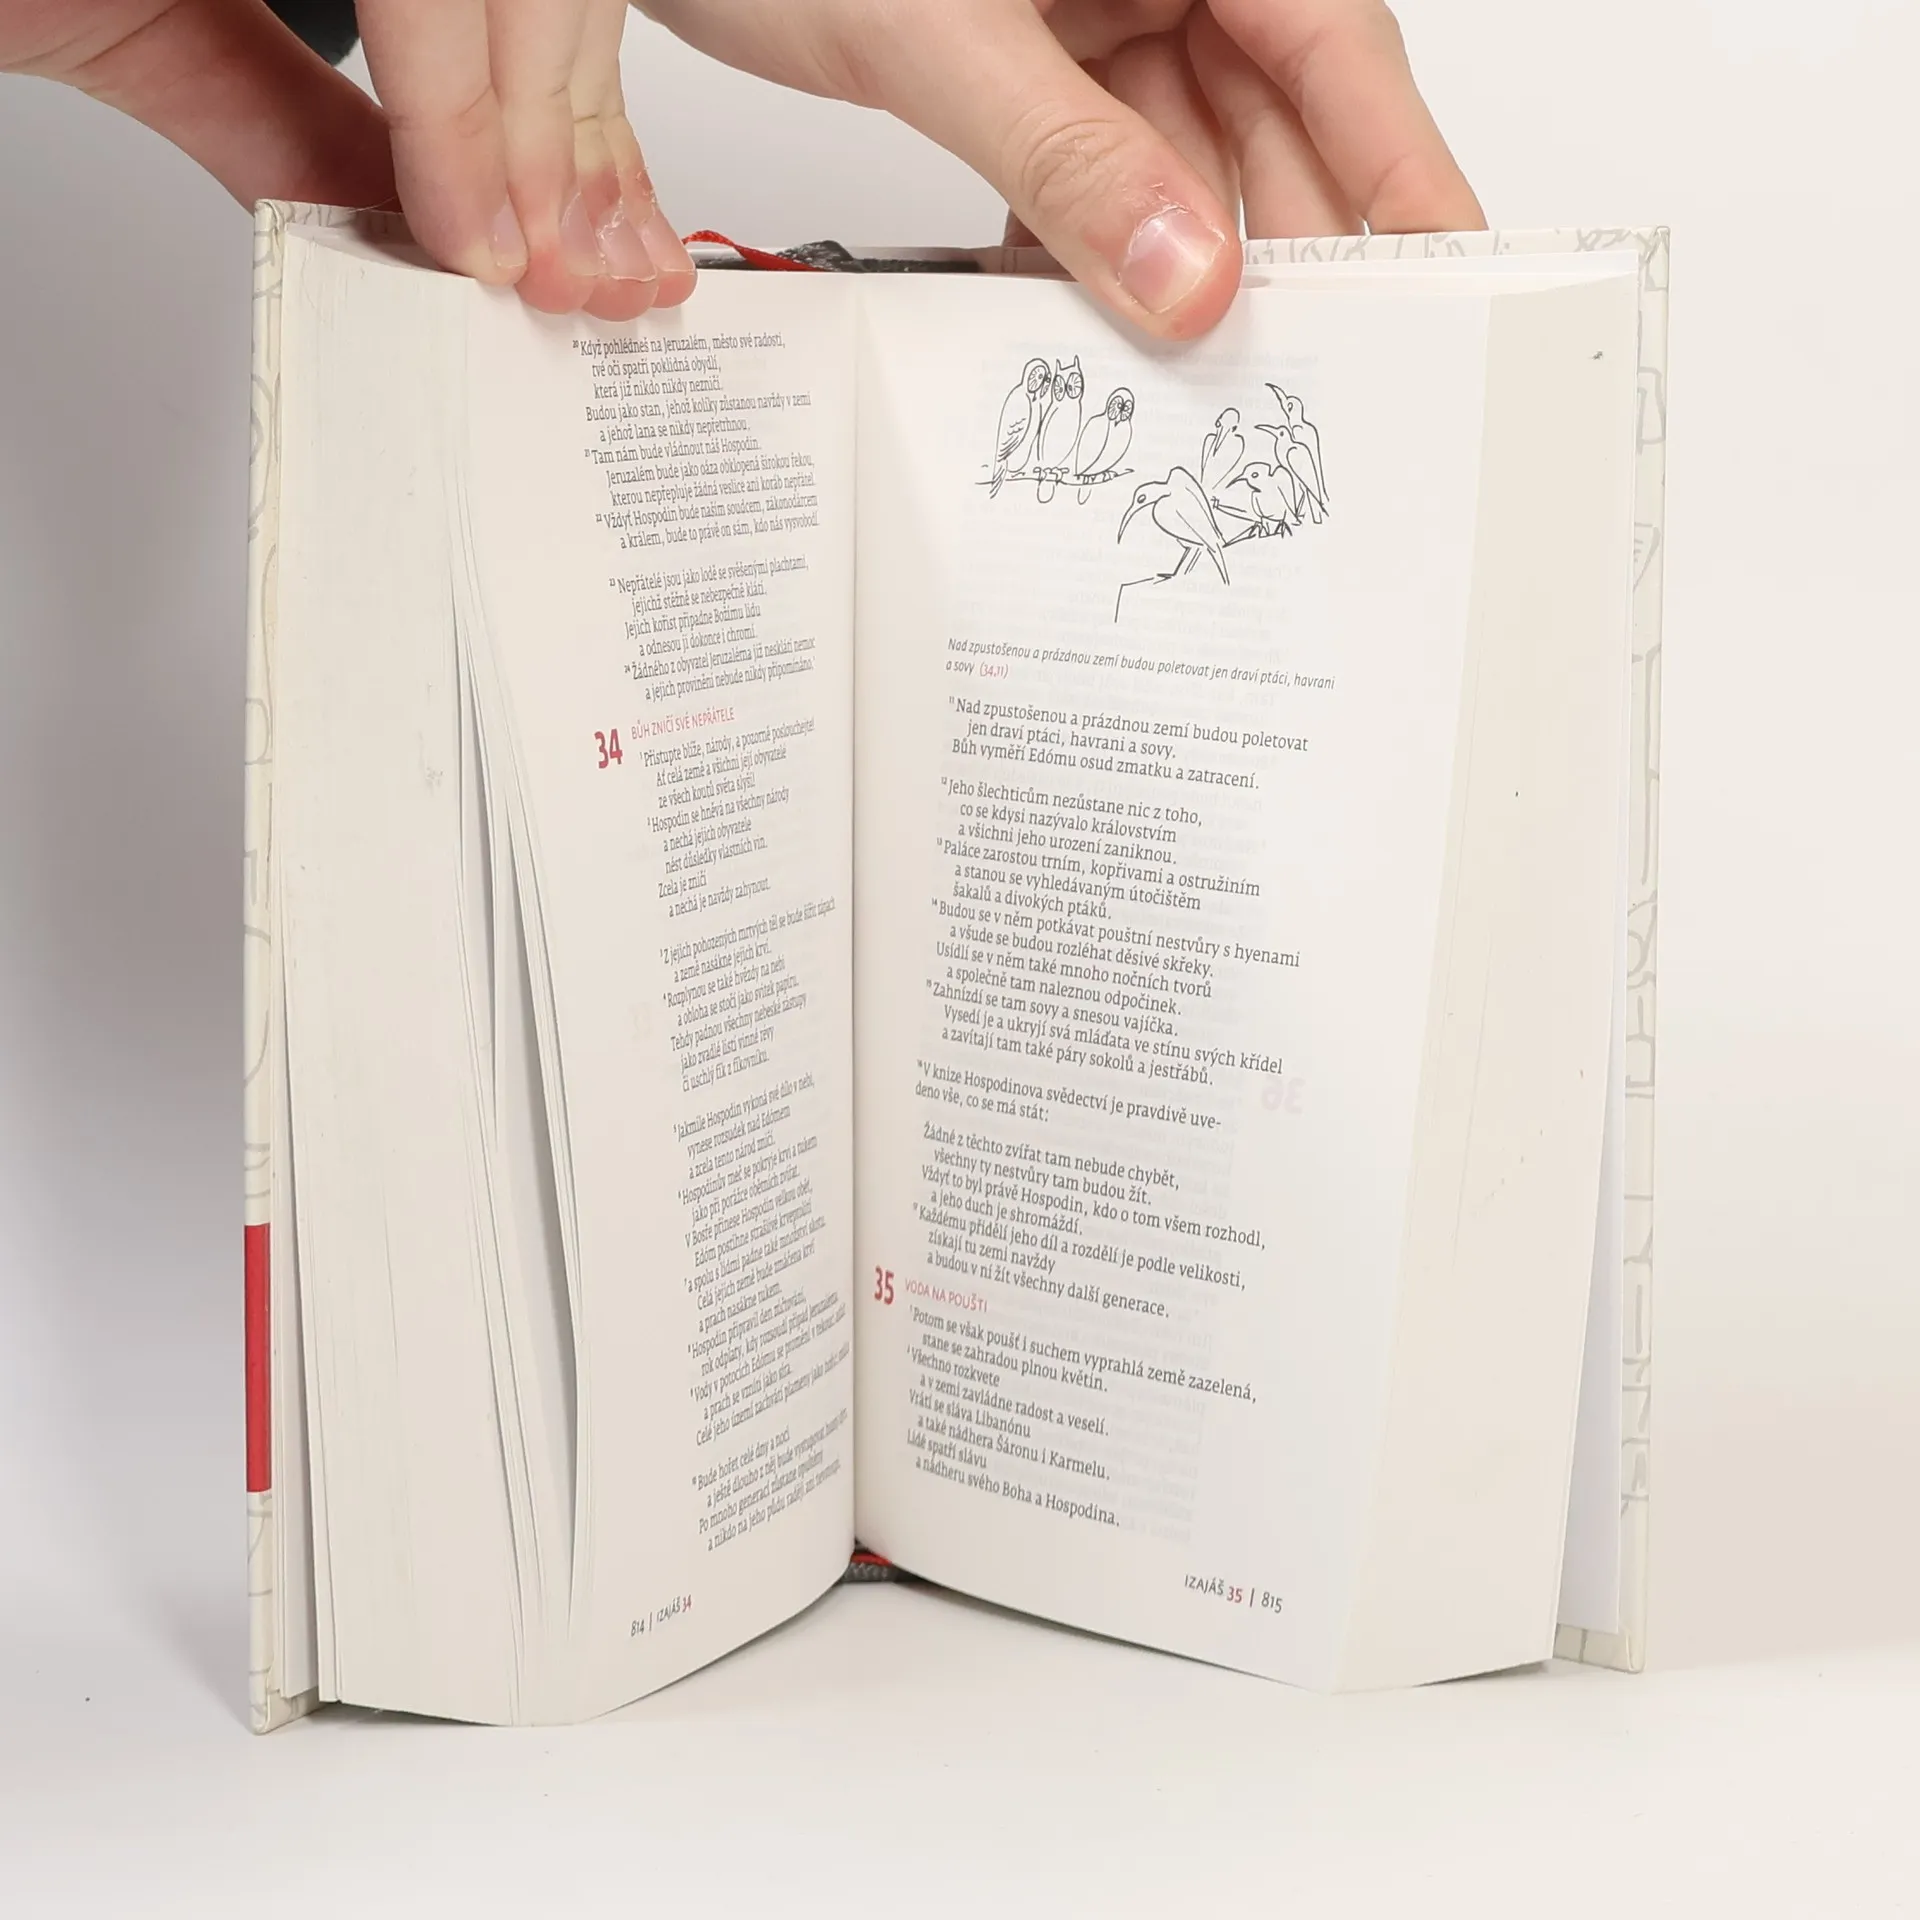 20 Když pohlédneš na Jeruzalém, město své radosti,
tvé oči spatří poklidná obydlí,
která již nikdo nikdy nezničí.
Budou jako stan, jehož kolíky zůstanou navždy v zemi
a jehož lana se nikdy nepřetrhnou.
21 Tam nám bude vládnout náš Hospodin.
Jeruzalém bude jako oáza obklopená širokou řekou,
kterou nepřepluje žádná veslice ani koráb nepřátel.
22 Vždyť Hospodin bude naším soudcem, zákonodárcem
a králem, bude to právě on sám, kdo nás vysvobodí.
23 Nepřátelé jsou jako lodě se svěšenými plachtami,
jejichž stěžně se nebezpečně klátí.
Jejich kořist připadne Božímu lidu
a odnesou ji dokonce i chromí.
24 Žádného z obyvatel Jeruzaléma již neskláti nemoc
a jejich provinění nebude nikdy připomínáno.
34 BŮH ZNIČÍ SVÉ NEPŘÁTELE
1 Přistupte blíže, národy, a pozorně poslouchejte!
Ať celá země a všichni její obyvatelé
ze všech koutů světa slyší!
2 Hospodin se hněvá na všechny národy
a nechá jejich obyvatele
nést důsledky vlastních vin.
Zcela je zničí
a nechá je navždy zahynout.
3 Z jejich pohozených mrtvých těl se bude šířit zápach
a země nasákne jejich krví.
4 Rozplynou se také hvězdy na nebi
a obloha se stočí jako svitek papíru.
Tehdy padnou všechny nebeské zástupy
jako zvadlé listí vinné révy
či uschlý fík z fíkovníku.
5 Jakmile Hospodin vykoná své dílo v nebi,
vynese rozsudek nad Edómem
a zcela tento národ zničí.
6 Hospodinův meč se pokryje krví a tukem
jako při porážce obětních zvířat.
V Bosře přinese Hospodin velkou oběť,
Edóm postihne strašlivé krveprolití
7 a spolu s lidmi padne také množství skotu.
Celá jejich země bude smáčena krví
a prach nasákne tukem.
8 Hospodin připravil den zúčtování,
rok odplaty, kdy rozsoudí případ Jeruzaléma.
9 Vody v potocích Edómu se promění v tekoucí
a prach se vznítí jako síra.
Celé jeho území zachvátí plameny jako hořící
10 Bude hořet celé dny a noci
a ještě dlouho z něj bude vystupovat
Po mnoho generací zůstane opuštěný
a nikdo na jeho půdu raději ani nevstoupí.
814 | IZAJÁŠ 34
Nad zpustošenou a prázdnou zemí budou poletovat jen draví ptáci, havrani
a sovy (34,11)
11 Nad zpustošenou a prázdnou zemí budou poletovat
jen draví ptáci, havrani a sovy.
Bůh vyměří Edómu osud zmatku a zatracení.
12 Jeho šlechticům nezůstane nic z toho,
co se kdysi nazývalo královstvím
a všichni jeho urození zaniknou.
13 Paláce zarostou trním, kopřivami a ostružiním
a stanou se vyhledávaným útočištěm
šakalů a divokých ptáků.
14 Budou se v něm potkávat pouštní nestvůry s hyenami
a všude se budou rozléhat děsivé skřeky.
Usídlí se v něm také mnoho nočních tvorů
a společně tam naleznou odpočinek.
15 Zahnízdí se tam sovy a snesou vajíčka.
Vysedí je a ukryjí svá mláďata ve stínu svých křídel
a zavítají tam také páry sokolů a jestřábů.
16 V knize Hospodinova svědectví je pravdivě uve-
deno vše, co se má stát:
Žádné z těchto zvířat tam nebude chybět,
všechny ty nestvůry tam budou žít.
Vždyť to byl právě Hospodin, kdo o tom všem rozhodl,
a jeho duch je shromáždí.
17 Každému přidělí jeho díl a rozdělí je podle velikosti,
získají tu zemi navždy
a budou v ní žít všechny další generace.
35 VODA NA POUŠTI
1 Potom se však poušť i suchem vyprahlá země zazelená,
stane se zahradou plnou květin.
2 Všechno rozkvete
a v zemi zavládne radost a veselí.
Vrátí se sláva Libanónu
a také nádhera Šáronu i Karmelu.
Lidé spatří slávu
a nádheru svého Boha a Hospodina.
IZAJÁŠ 35 | 815